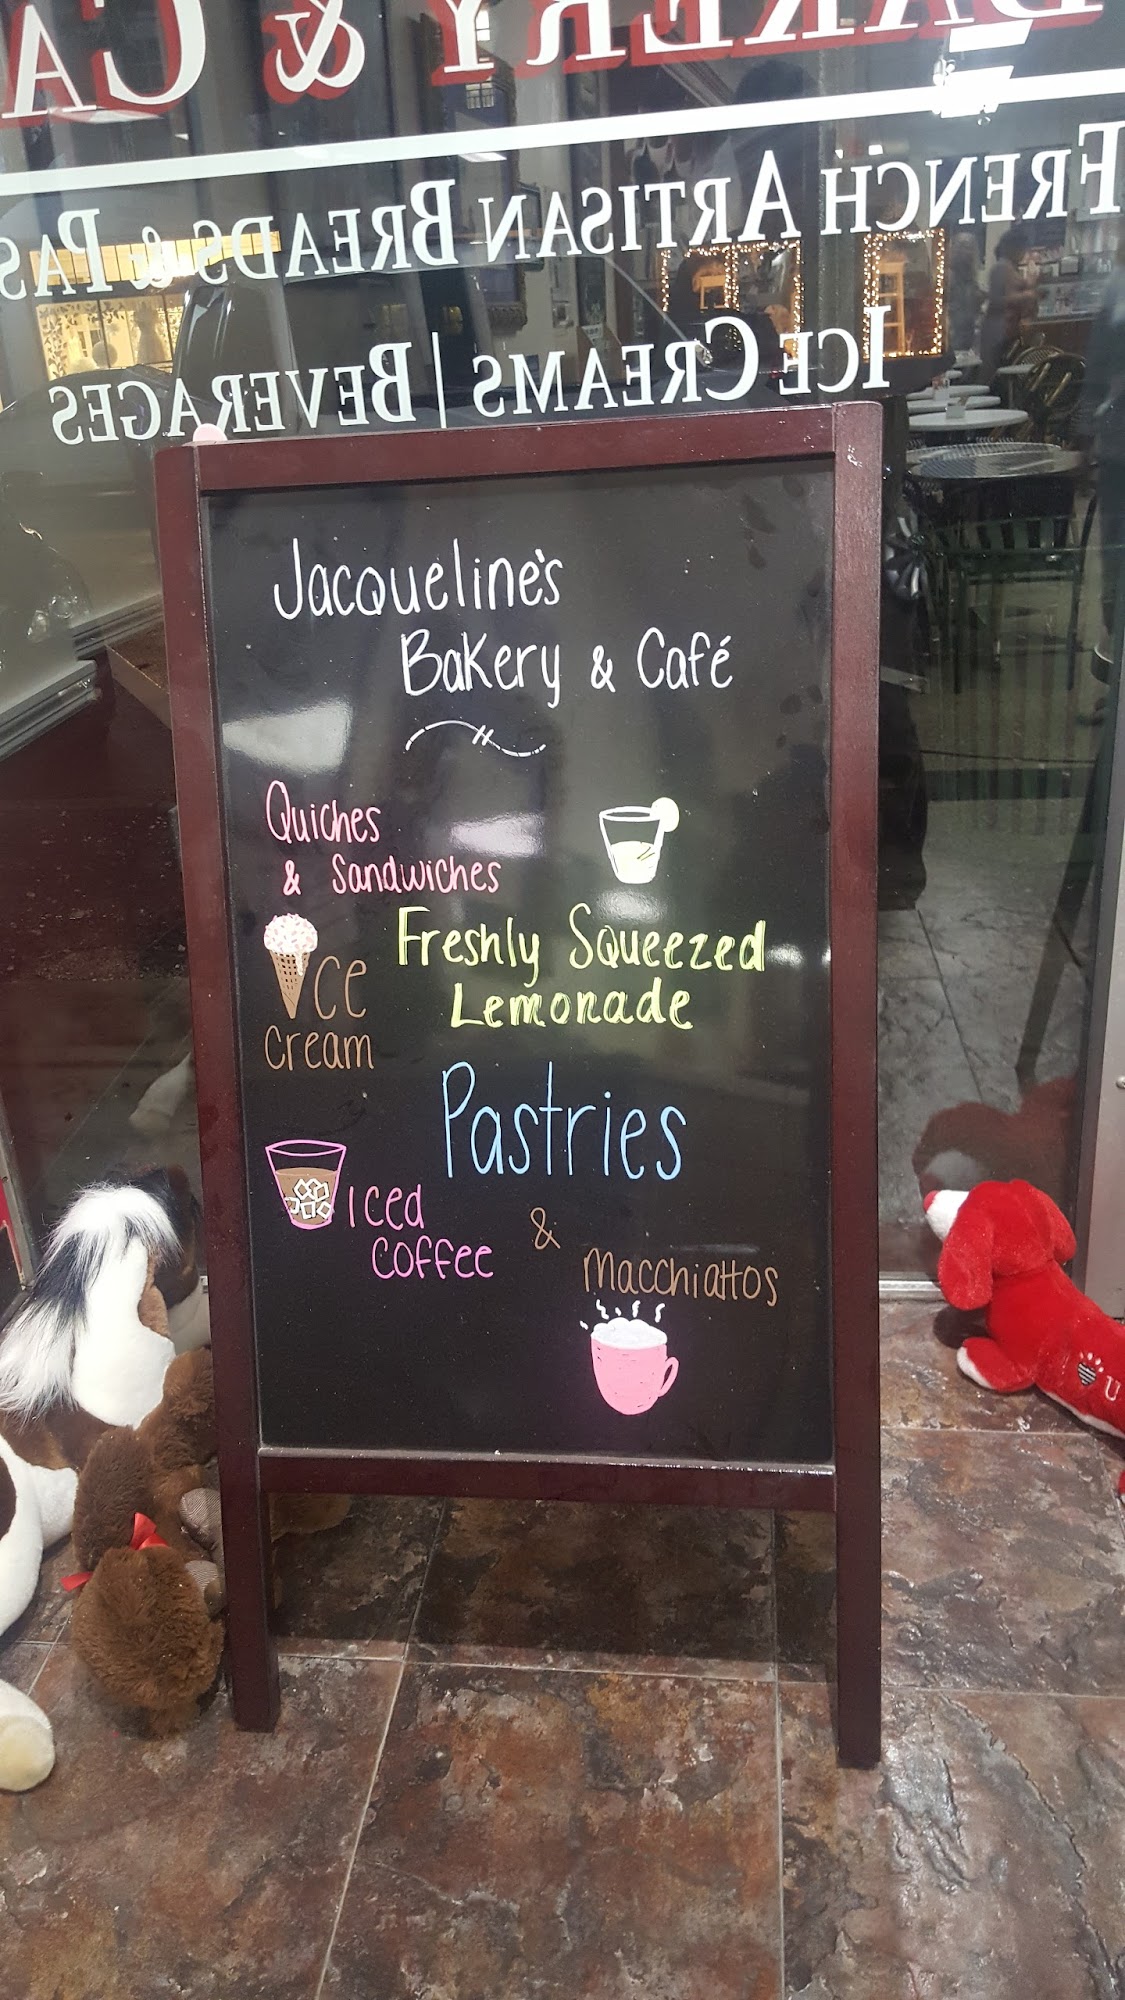 BAKERY & CA
FRENCH ARTISAN BREADS & PAS
ICE CREAMS | BEVERAGES
Jacqueline's
Bakery & Café
Quiches
& Sandwiches
Freshly Squeezed
Lemonade
Ice
Cream
Pastries
Iced
Coffee
&
Macchiattos
U